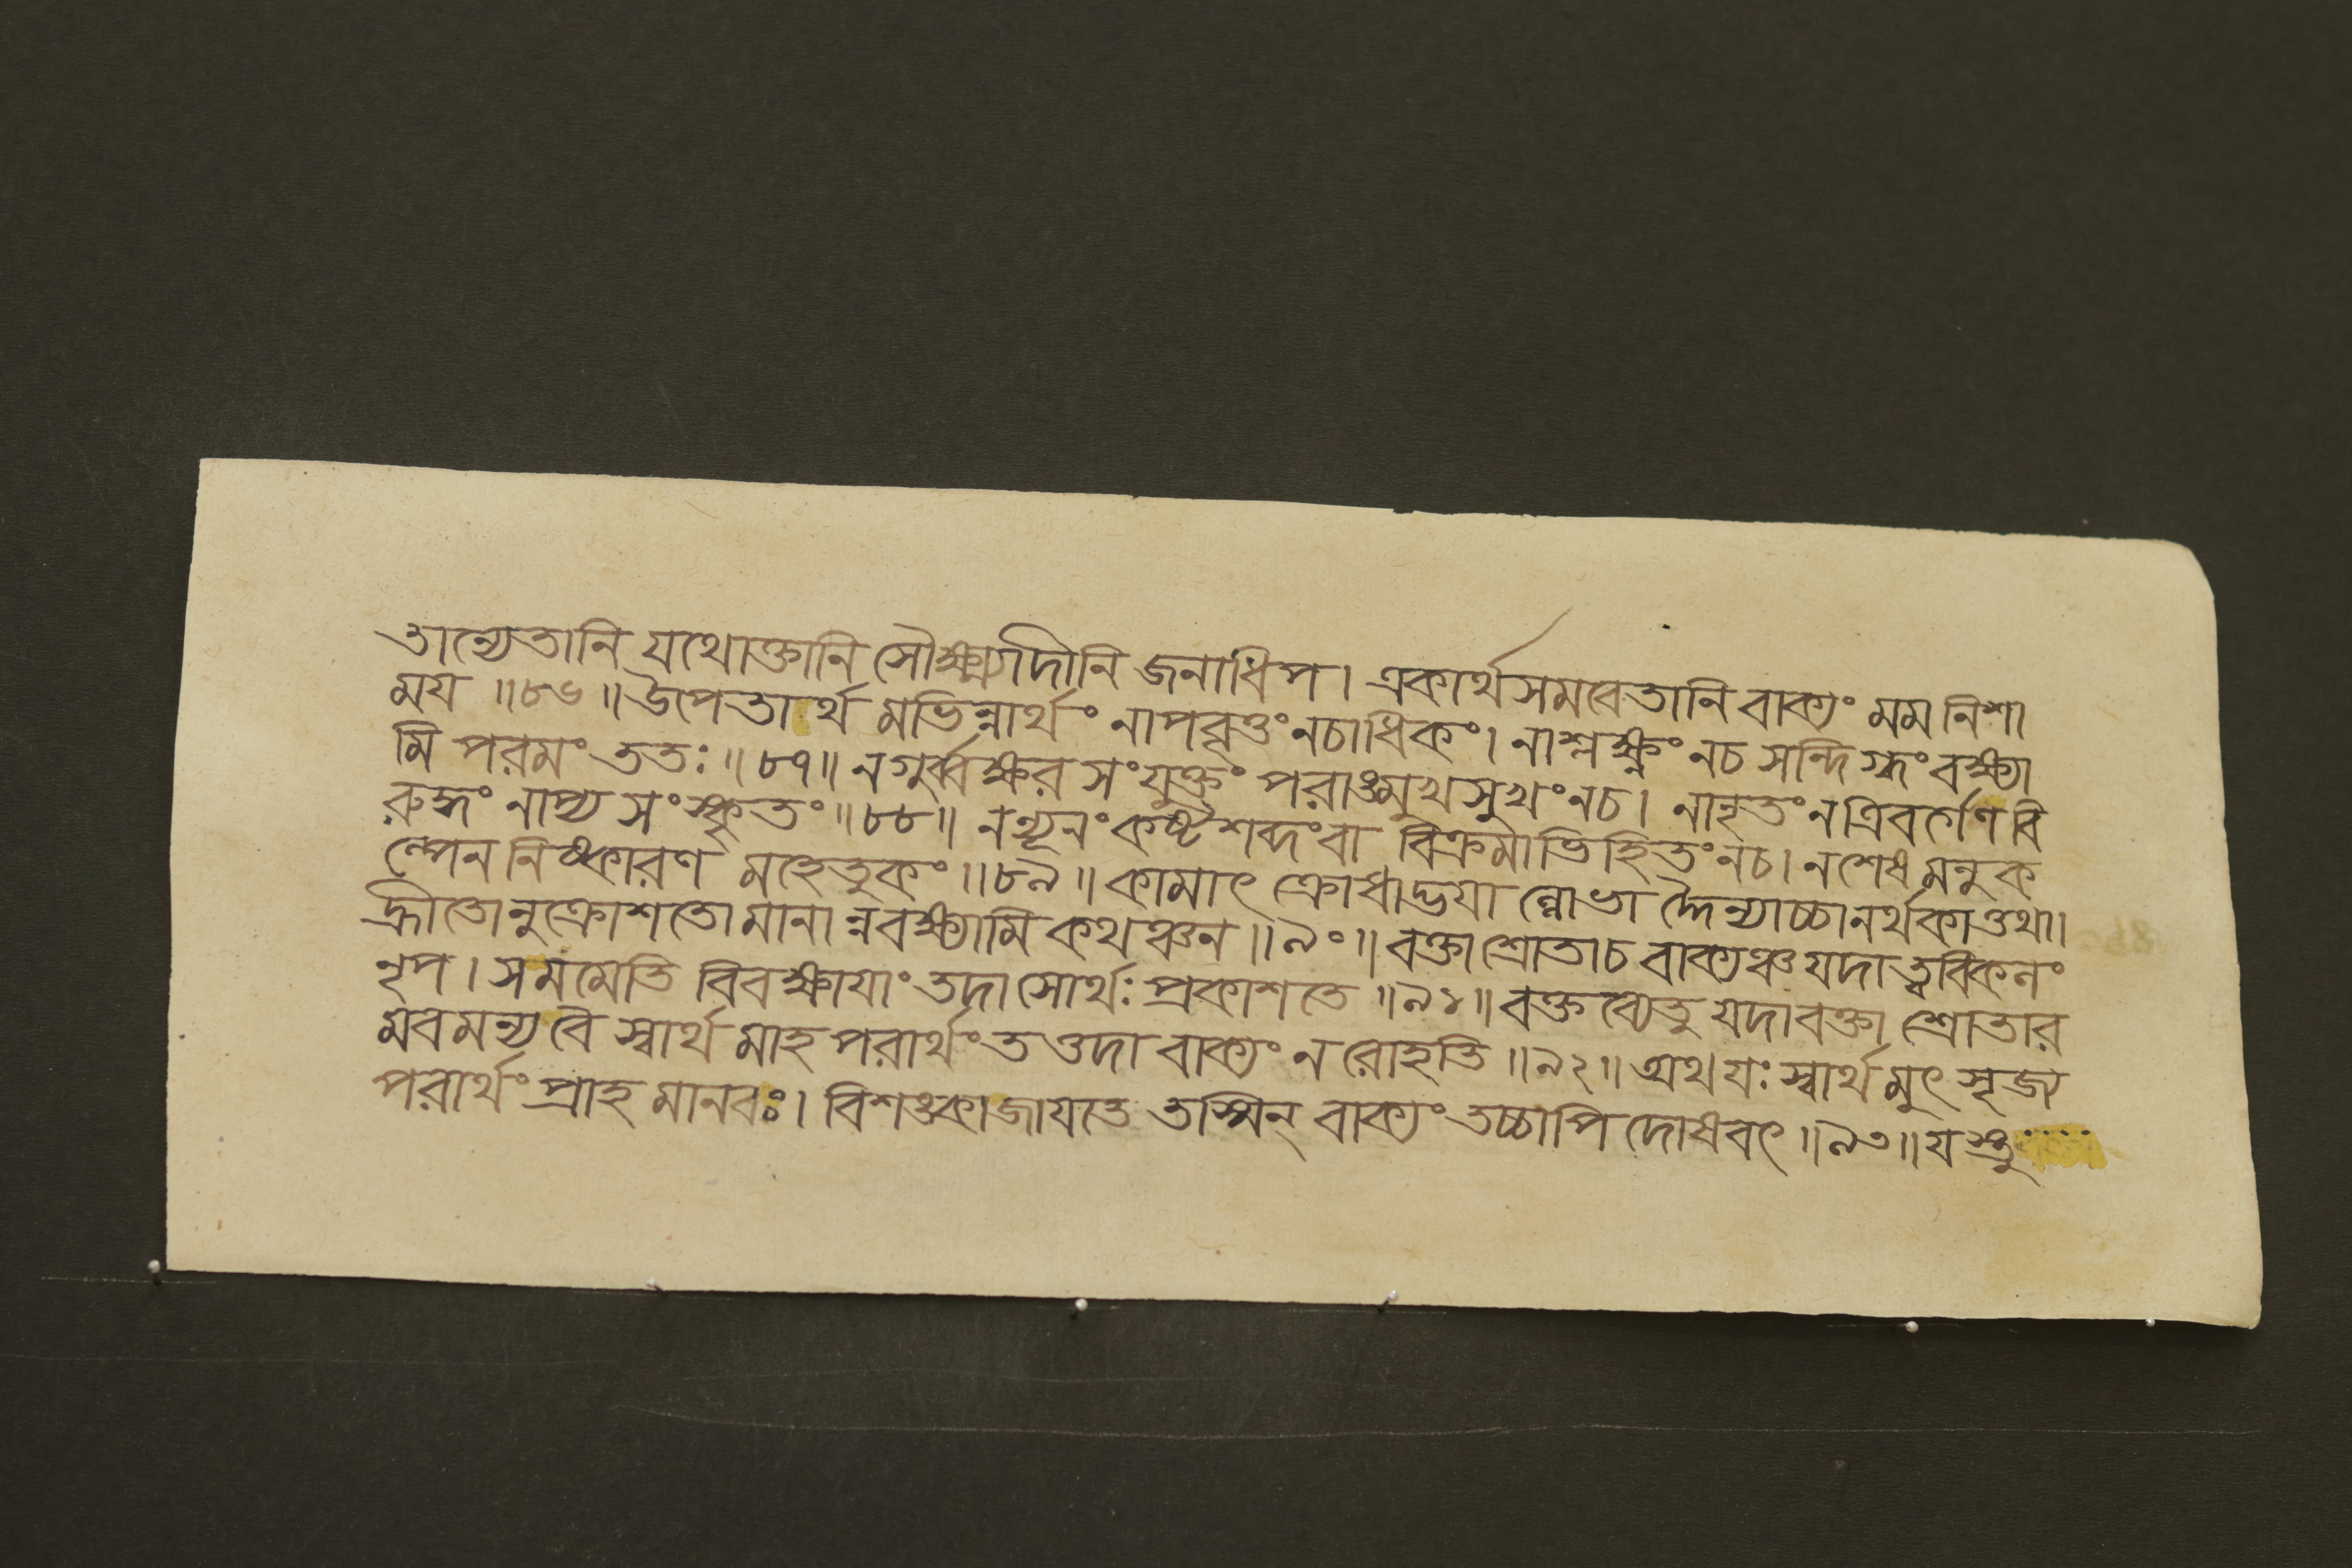 তান্যেতানি যথোক্তানি সৌক্ষ্ম্যাদীনি জনাধিপ। একার্থসমবেতানি বাক্যং মম নিশা
ময ॥৮৬॥ উপেতার্থ মভিন্নার্থং নাপবৃত্তং নচাধিকং। নাশ্লক্ষ্ণং নচ সন্দিগ্ধং বক্ষ্যা
মি পরমং ততঃ ॥৮৭॥ নগুর্ব্বক্ষর সংযুক্তং পরাঙ্মুখসুখং নচ। নানৃতং নত্রিবর্গেণ বি
রুদ্ধং নাপ্য সংস্কৃতং ॥৮৮॥ নন্যূনং কষ্টশব্দং বা বিক্রমাভিহিতং নচ। নশেষ মনুক
ল্পেন নিষ্কারণ মহেতুকং ॥৮৯॥ কামাৎ ক্রোধাদ্ভযা ল্লোভা দ্দৈন্যাচ্চানর্থকাত্তথা।
হ্রীতোনুক্রোশতোমানান্নবক্ষ্যামি কথঞ্চন ॥৯০॥ বক্তা শ্রোতাচ বাক্যঞ্চ যদা ত্ববিকলং
নৃপ। সমমেতি বিবক্ষাযাং তদা সোর্থঃ প্রকাশতে ॥৯১॥ বক্তব্যেতু যদাবক্তা শ্রোতার
মবমন্য বৈ স্বার্থ মাহ পরার্থং তত্তদা বাক্যং ন রোহতি ॥৯২॥ অথ যঃ স্বার্থ মুৎসৃজ্য
পরার্থং প্রাহ মানবঃ। বিশঙ্কা জাযতে তস্মিন্ বাক্যং তচ্চাপি দোষবৎ ॥৯৩॥ যস্তু